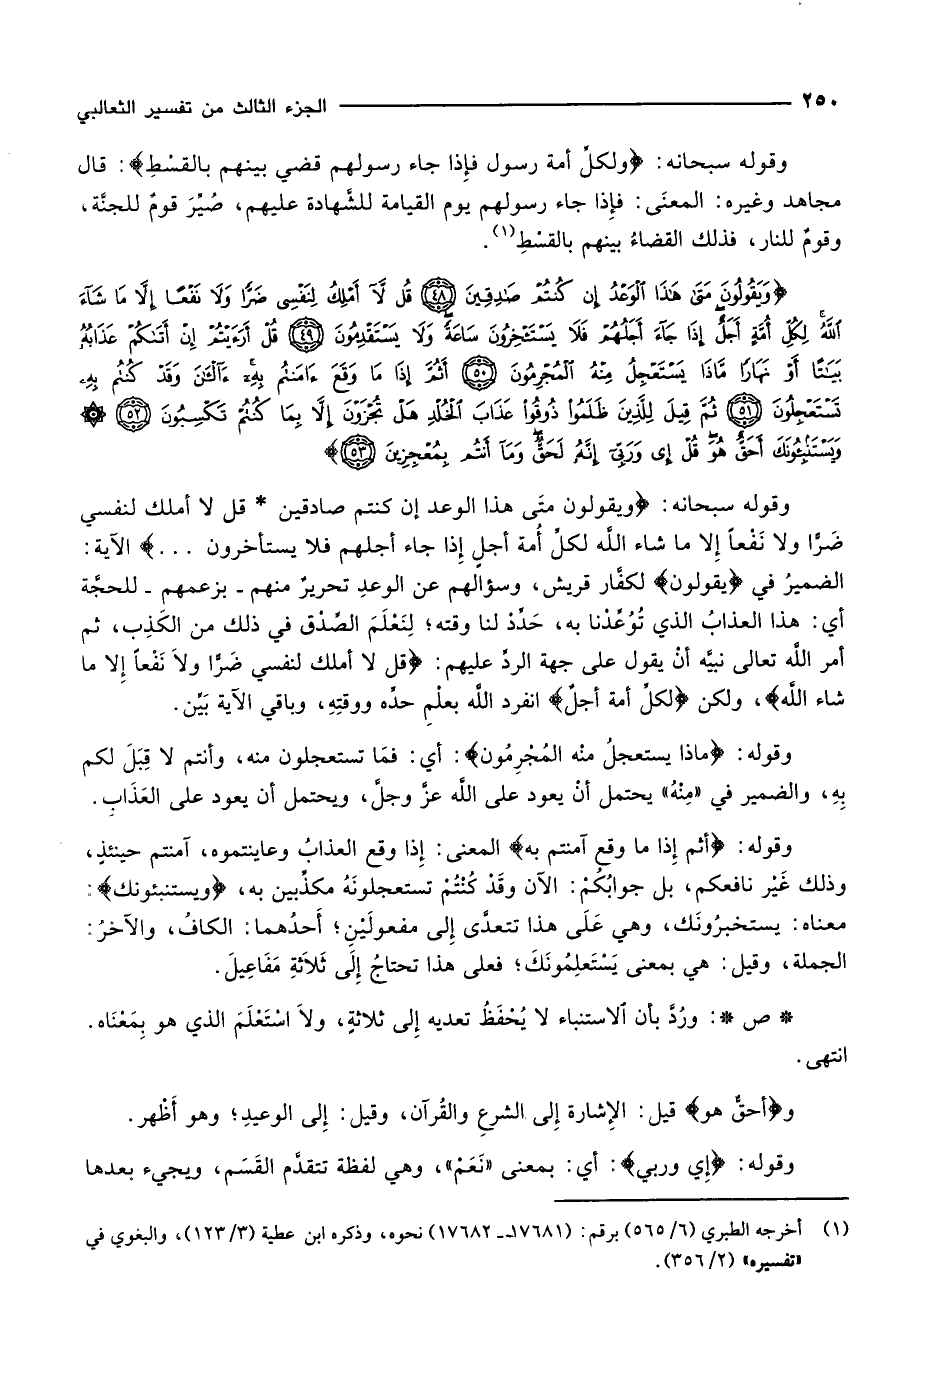 ٢٥٠ الجزء الثالث من تفسير الثعالبي
وقوله سبحانه: ﴿ولكلِّ أمة رسول فإِذا جاء رسولهم قضي بينهم بالقسْطِ﴾: قال
مجاهد وغيره: المعنَى: فإِذا جاء رسولهم يوم القيامة للشَّهادة عليهم، صُيِّرَ قومٌ للجنَّة،
وقومٌ للنار، فذلك القضاءُ بينهم بالقسْطِ(١).
﴿وَيَقُولُونَ مَتَىٰ هَٰذَا ٱلْوَعْدُ إِن كُنتُمْ صَٰدِقِينَ ٤٨ قُل لَّآ أَمْلِكُ لِنَفْسِى ضَرًّا وَلَا نَفْعًا إِلَّا مَا شَآءَ
ٱللَّهُ لِكُلِّ أُمَّةٍ أَجَلٌ إِذَا جَآءَ أَجَلُهُمْ فَلَا يَسْتَـْٔخِرُونَ سَاعَةً وَلَا يَسْتَقْدِمُونَ ٤٩ قُلْ أَرَءَيْتُمْ إِنْ أَتَىٰكُمْ عَذَابُهُۥ
بَيَٰتًا أَوْ نَهَارًا مَّاذَا يَسْتَعْجِلُ مِنْهُ ٱلْمُجْرِمُونَ ٥٠ أَثُمَّ إِذَا مَا وَقَعَ ءَامَنتُم بِهِۦٓ ءَآلْـَٰٔنَ وَقَدْ كُنتُم بِهِۦ
تَسْتَعْجِلُونَ ٥١ ثُمَّ قِيلَ لِلَّذِينَ ظَلَمُوا۟ ذُوقُوا۟ عَذَابَ ٱلْخُلْدِ هَلْ تُجْزَوْنَ إِلَّا بِمَا كُنتُمْ تَكْسِبُونَ ٥٢ ۞
وَيَسْتَنۢبِـُٔونَكَ أَحَقٌّ هُوَ قُلْ إِى وَرَبِّىٓ إِنَّهُۥ لَحَقٌّ وَمَآ أَنتُم بِمُعْجِزِينَ ٥٣﴾
وقوله سبحانه: ﴿ويقولون متَى هذا الوعد إن كنتم صادقين * قل لا أملك لنفسي
ضَرًّا ولا نَفْعاً إِلا ما شاء اللَّه لكلِّ أُمة أجلٍ إِذا جاء أجلهم فلا يستأخرون ...﴾ الآية:
الضميرُ في ﴿يقولون﴾ لكفَّار قريش، وسؤالهم عن الوعدِ تحريرٌ منهم ـ بزعمهم ـ للحجَّة
أي: هذا العذابُ الذي تُوُعِّدْنا به، حَدِّدْ لنا وقته؛ لِنَعْلَمَ الصِّدْق في ذلك من الكَذِب، ثم
أمر اللَّه تعالى نبيَّه أنْ يقول على جهة الردِّ عليهم: ﴿قل لا أملك لنفسي ضَرًّا ولاَ نَفْعاً إِلا ما
شاء اللَّه﴾، ولكن ﴿لكلِّ أمة أجلٌ﴾ انفرد اللَّه بعلْمِ حدِّه ووقتِهِ، وباقي الآية بَيِّن.
وقوله: ﴿ماذا يستعجلُ منْه المُجْرِمُون﴾: أي: فمَا تستعجلون منه، وأنتم لا قِبَلَ لكم
بِهِ، والضمير في «مِنْهُ» يحتمل أنْ يعود على اللَّه عزَّ وجلَّ، ويحتمل أن يعود على العَذَابِ.
وقوله: ﴿أثم إِذا ما وقع آمنتم به﴾ المعنى: إِذا وقع العذابُ وعاينتموه، آمنتم حينئذٍ،
وذلك غَيْر نافعكم، بل جوابُكُمْ: الآن وقَدْ كُنْتُمْ تستعجلونَهُ مكذِّبين به، ﴿ويستنبئونك﴾:
معناه: يستخبرُونَك، وهي عَلَى هذا تتعدَّى إِلى مفعولَيْنِ؛ أحدُهما: الكافُ، والآخرُ:
الجملة، وقيل: هي بمعنى يَسْتَعلِمُونَكَ؛ فعلى هذا تحتاجُ إِلَى ثَلاَثَةِ مَفَاعِيلَ.
* ص *: ورُدَّ بأن ٱلاستنباء لا يُحْفَظُ تعديه إِلى ثلاثةٍ، ولاَ اسْتَعْلَمَ الذي هو بِمَعْنَاه.
انتهى.
و﴿أحقٌّ هو﴾ قيل: الإِشارة إِلى الشرعِ والقُرآن، وقيل: إِلى الوعيدِ؛ وهو أَظْهر.
وقوله: ﴿إِي وربي﴾: أي: بمعنى «نَعَمْ»، وهي لفظة تتقدَّم القَسَم، ويجيء بعدها
(١) أخرجه الطبري (٦/ ٥٦٥) برقم: (١٧٦٨١ـ ١٧٦٨٢) نحوه، وذكره ابن عطية (٣/ ١٢٣)، والبغوي في
«تفسيره» (٢/ ٣٥٦).